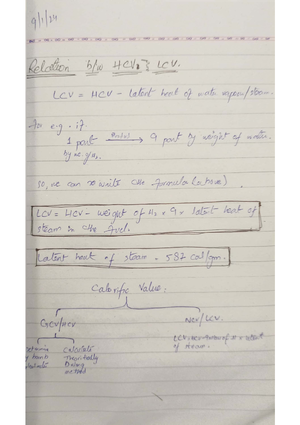 9/1/24
Relation b/w HCV & LCV.
LCV = HCV - Latent heat of water vapour/steam.
As e.g. if
1 part → 9 part by weight of water.
by
so, we can rewrite the formula (above)
LCV = HCV - weight of H₂ × 9 × latent heat of
steam in the fuel.
Latent heat of steam = 587 cal/gm.
Calorific Value.
GCV/HCV
NCV/LCV.
calculate
theoretically
Dulong
method
of steam.